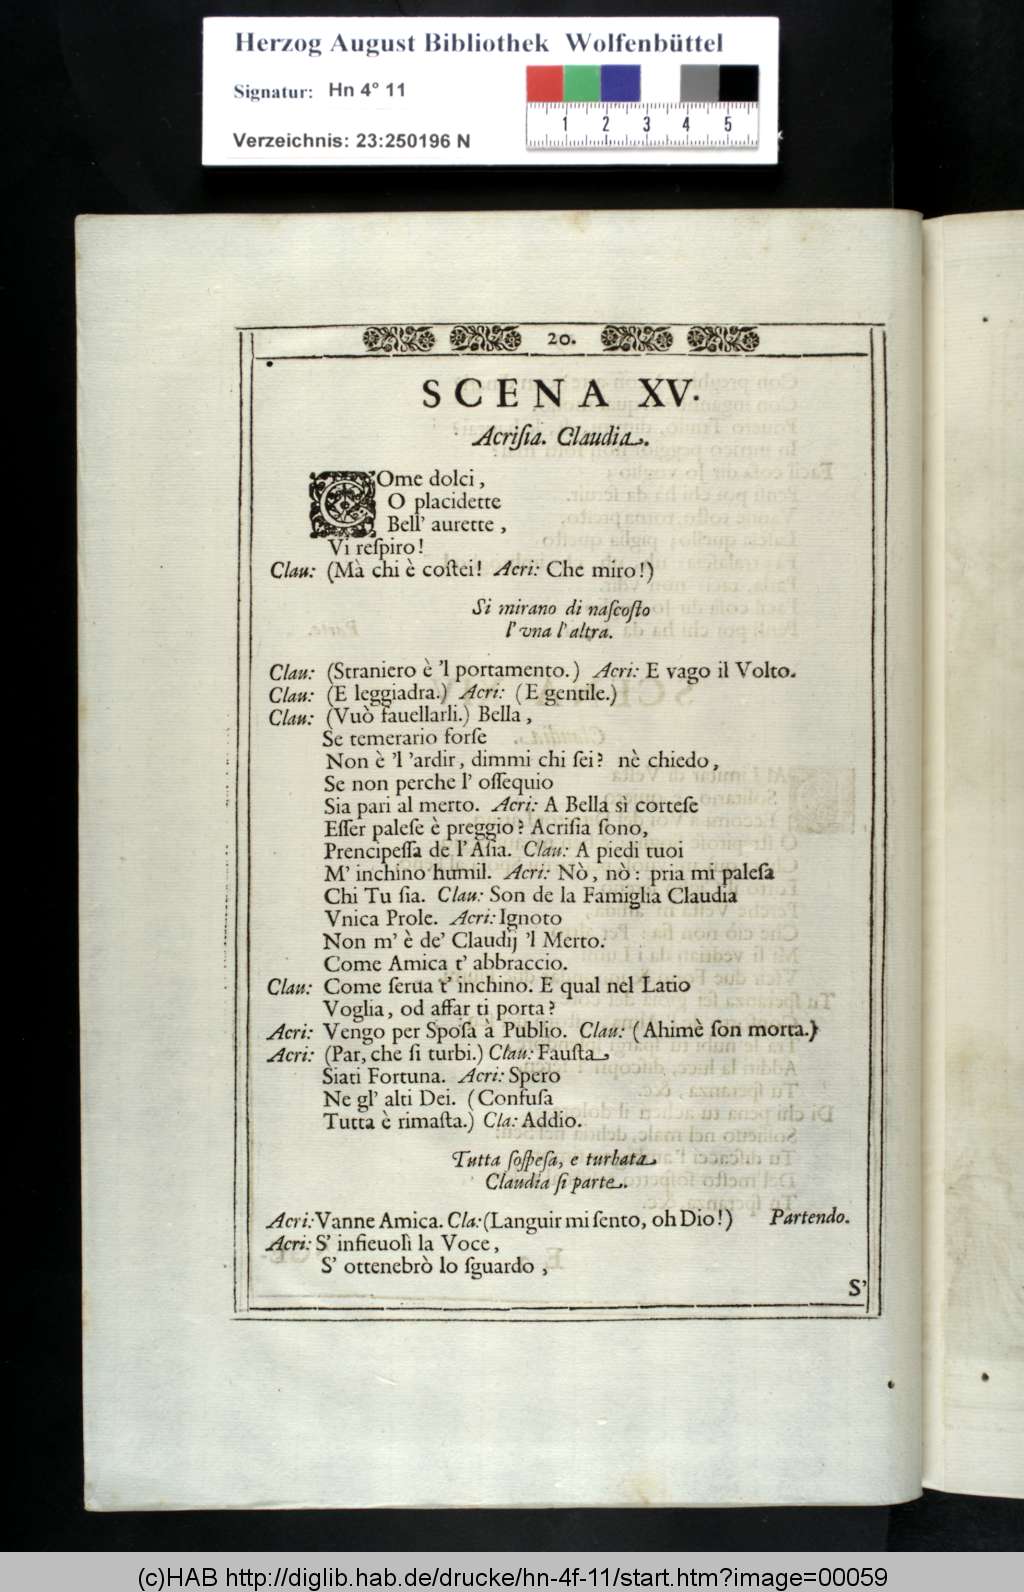 Herzog August Bibliothek Wolfenbüttel
Signatur: Hn 4° 11
Verzeichnis: 23:250196 N
1 2 3 4 5
20.
SCENA XV.
Acriſia. Claudia.
COme dolci,
O placidette
Bell' aurette,
Vi reſpiro!
Clau: (Mà chi è coſtei! Acri: Che miro!)
Si mirano di naſcoſto
l'vna l'altra.
Clau: (Straniero è 'l portamento.) Acri: E vago il Volto.
Clau: (E leggiadra.) Acri: (E gentile.)
Clau: (Vuò fauellarli.) Bella,
Se temerario forſe
Non è 'l 'ardir, dimmi chi ſei? nè chiedo,
Se non perche l' oſſequio
Sia pari al merto. Acri: A Bella sì corteſe
Eſſer paleſe è preggio? Acriſia ſono,
Prencipeſſa de l'Aſia. Clau: A piedi tuoi
M' inchino humil. Acri: Nò, nò: pria mi paleſa
Chi Tu ſia. Clau: Son de la Famiglia Claudia
Vnica Prole. Acri: Ignoto
Non m' è de' Claudij 'l Merto.
Come Amica t' abbraccio.
Clau: Come ſerua t' inchino. E qual nel Latio
Voglia, od affar ti porta?
Acri: Vengo per Spoſa à Publio. Clau: (Ahimè ſon morta.)
Acri: (Par, che ſi turbi.) Clau: Fauſta
Siati Fortuna. Acri: Spero
Ne gl' alti Dei. (Confuſa
Tutta è rimaſta.) Cla: Addio.
Tutta ſoſpeſa, e turbata
Claudia ſi parte.
Acri: Vanne Amica. Cla: (Languir mi ſento, oh Dio!) Partendo.
Acri: S' infieuolì la Voce,
S' ottenebrò lo ſguardo,
S'
(c)HAB http://diglib.hab.de/drucke/hn-4f-11/start.htm?image=00059